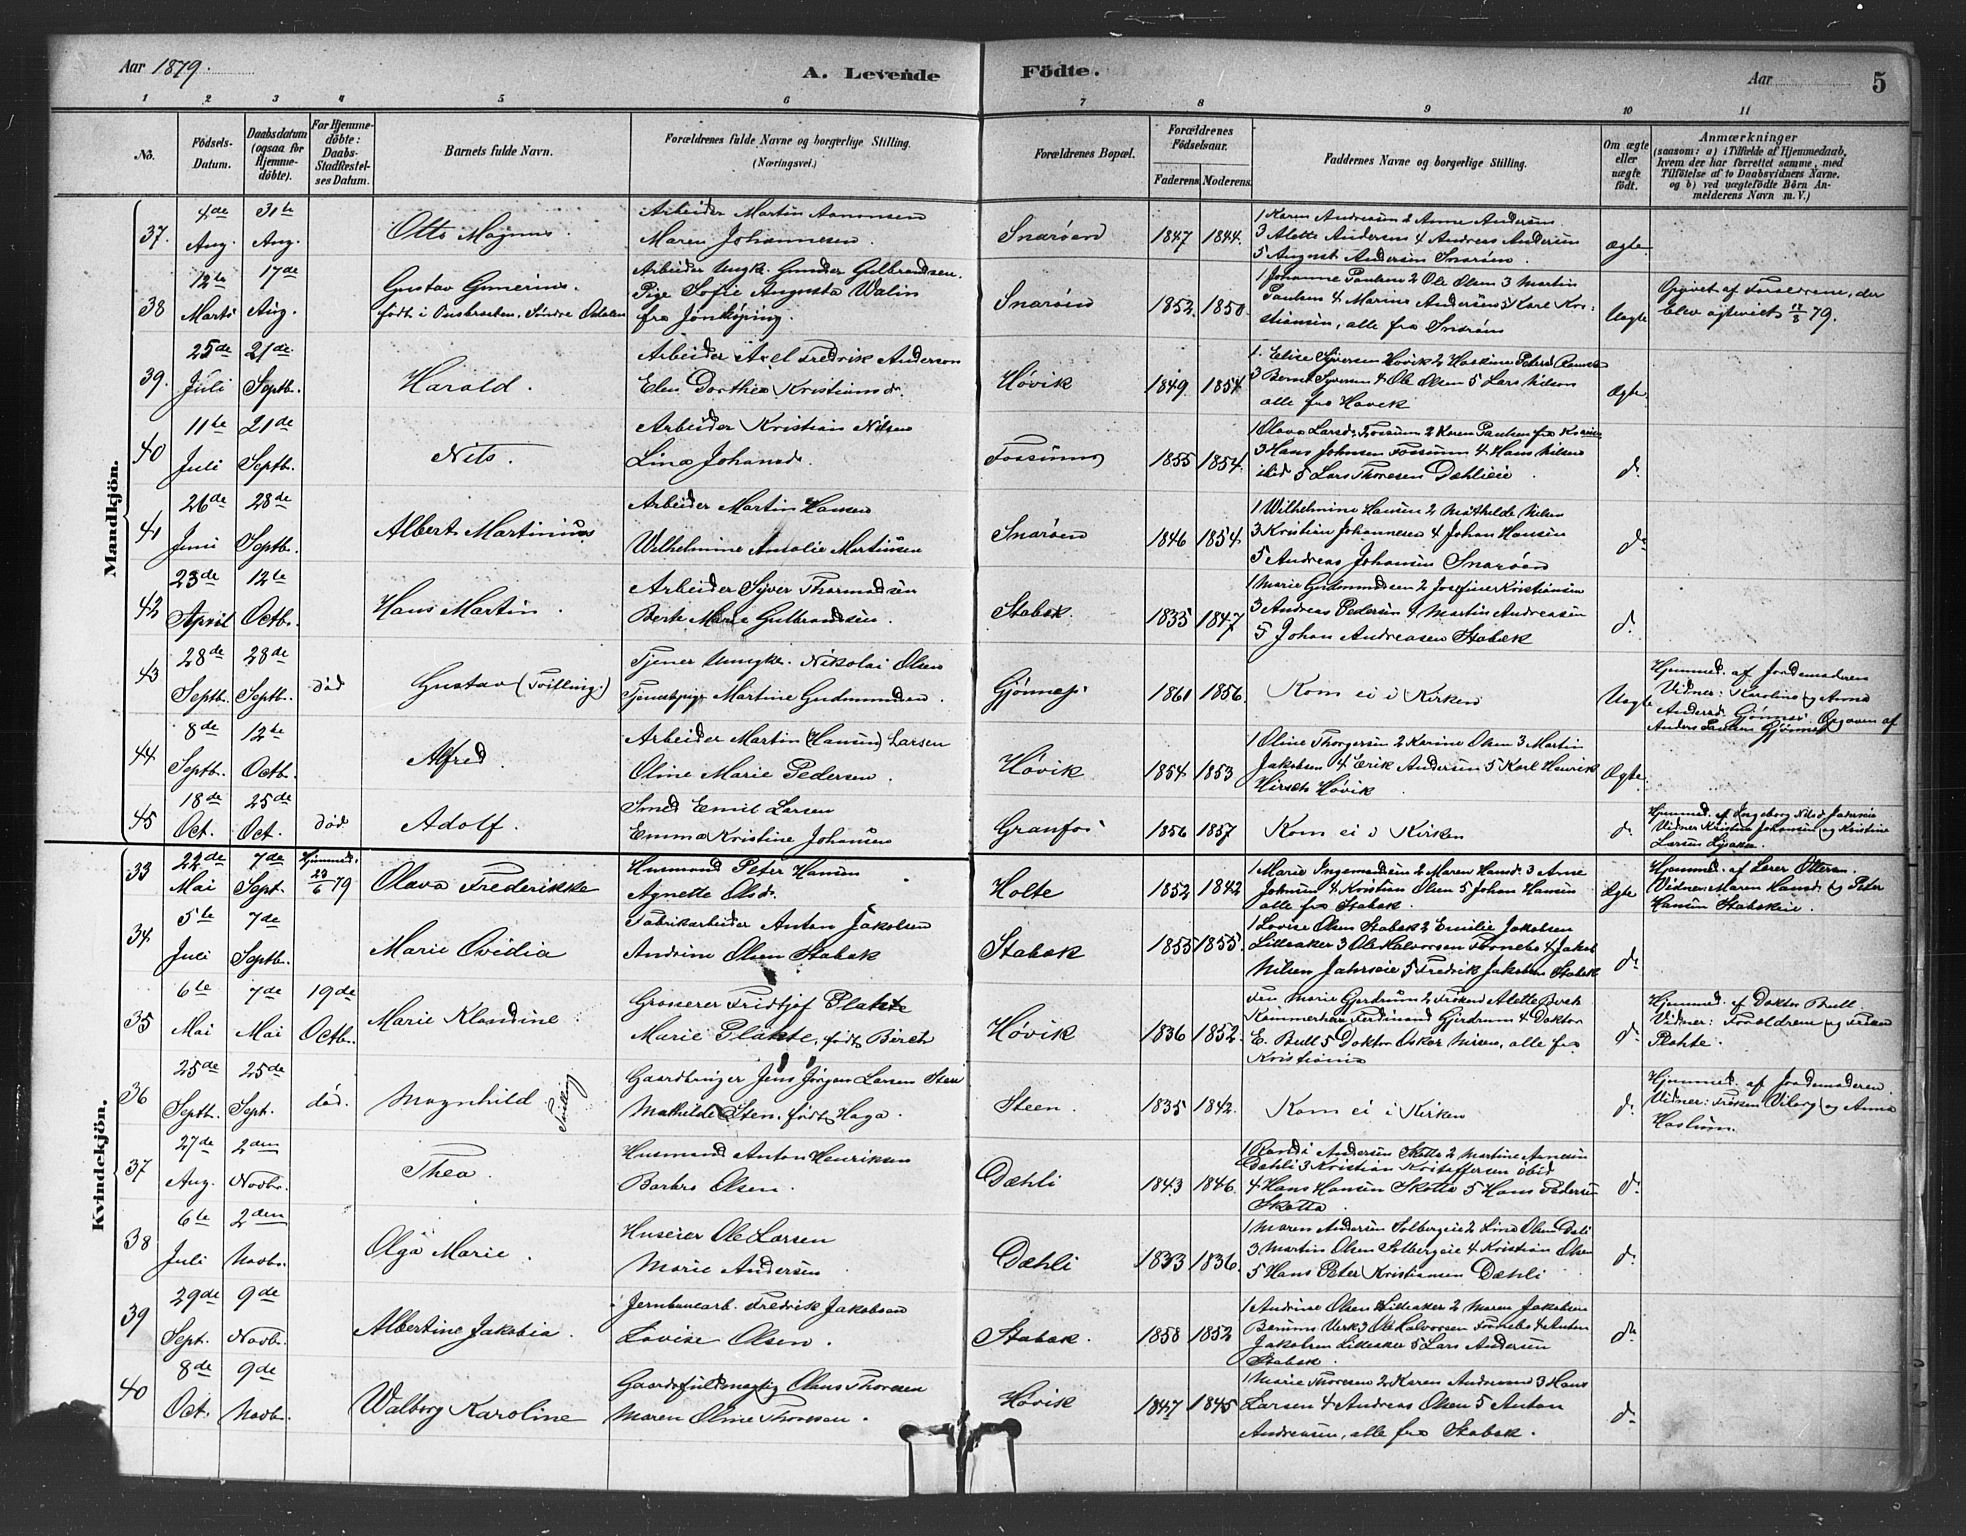 Aar 1879.
A. Levende Födte.
Aar
5
1 2 3 4 5 6 7 8 9 10 11
No.
Födsels-Datum.
Daabsdatum (ogsaa for Hjemmedöbte).
For Hjemmedöbte: Daabs-Stadfæstelses Datum.
Barnets fulde Navn.
Forældrenes fulde Navne og borgerlige Stilling. (Næringsvei.)
Forældrenes Bopæl.
Forældrenes Födselsaar.
Faderens. Moderens.
Faddernes Navne og borgerlige Stilling.
Om ægte eller uægte födt.
Anmærkninger
(saasom: a) i Tilfælde af Hjemmedaab,
hvem der har forrettet samme, med
Tilföielse af to Daabsvidners Navne.
og b) ved uægtefödte Börn An-
melderens Navn m. V.)
Mandkjön.
37. 4de Aug. 31te Aug. Otto Magnus.
Arbeider Martin Aamonsen
Maren Johannesen.
Snarøen 1847 1844.
1 Karen Andreasen 2 Anne Andersen
3 Alette Andersen 4 Andreas Andersen
5 August Andersen Snarøen
Ægte
38 12te Marts 17de Aug. Gustav Gunerius.
født i Søndre Odalen
Arbeider Ungk. Gunder Gulbrandsen.
Pige Sofie Augusta Walin
fra Jönköping.
Snarøen 1852. 1850.
1 Johanne Paulsen 2 Ole Olsen 3 Martin
Paulsen 4 Marine Andersen 5 Karl Kri-
stiansen, alle fra Snarøen
Uægte
Opgivet af Forældrene, der
blev ægteviet 17/8 79.
39. 25de Juli 21de Septb. Harald.
Arbeider Axel Fredrik Anderson
Elen Dorthea Kristiansd.
Høvik 1849. 1854
1. Elise Syversen Høvik 2
3 Bernt Syversen 4 Ole Olsen 5 Lars Nilsen
alle fra Høvik
Ægte.
40 11te Juli 21de Septb. Nils.
Arbeider Kristian Nilsen
Lina Johansd.
Fossum 1855 1854.
1 Olava Larsd. Fossum 2 Karen Paulsen fra
3 Hans Johnsen Fossum 4 Hans Nilsen
ibid 5 Lars Thoresen Dæhlieie
do.
41 26de Juni 28de Septb. Albert Martinius
Arbeider Martin Hansen
Wilhelmine Amalie Martinsen
Snarøen 1846 1854.
1 Wilhelmine Hansen 2 Mathilde Nilsen
3 Kristian Johannesen 4 Johan Hansen
5 Andreas Johansen Snarøen
do.
42 23de April 12te Octb. Hans Martin.
Arbeider Syver Thormodsen
Berte Marie Gulbrandsen.
Stabæk. 1835 1847
1 Marie Gudmundsen 2 Josefine Kristiansen
3 Andreas Pedersen 4 Martin Andreasen
5 Johan Andreasen Stabæk
do.
43 28de Septb. 28de Septb. död Gustav (Tvilling.)
Tjener Ungk. Nikolai Olsen
Tjenestepige Martine Gudmundsen.
Gjønnes. 1861 1856. Kom ei i Kirken Uægte
Hjemmed. af Jordemoderen
Vidner: Karoline og Anna
Andersd. Gjønnes. Opgaven af
Anders Paulsen Gjønnes
44 8de Septb. 12te Octb. Alfred.
Arbeider Martin (Hansen) Larsen
Oline Marie Pedersen.
Høvik 1854. 1853
1 Oline Thorgersen 2 Karine Olsen 3 Martin
Jakobsen 4 Erik Andersen 5 Karl Henrik
Høvik.
Ægte.
45 18de Oct. 25de Oct. död Adolf.
Smed Emil Larsen
Emma Kristine Johansen
Granfos 1856 1857 Kom ei i Kirken do.
Hjemmed. af Ingeborg Nilsd.
Vidner Kristian Johansen og Kristine
Larsen Lysaker.
Kvindekjön.
33 22de Mai 7de Sept. Hjemmed. 23/6 79 Olava Frederikke
Husmand Peter Hansen
Agnette Olsd.
Holte 1852 1842
1 Marie Ingemundsen 2 Maren Hansd. 3 Arne
Johnsen 4 Kristian Olsen 5 Johan Hansen
alle fra Stabæk.
Ægte
Hjemmed. af Lærer Ottersen.
Vidner: Maren Hansd. og Peter
Hansen Stabækeie.
34. 5te Juli 7de Septb. Marie Ovidia
Fabrikarbeider Anton Jakobsen
Andrine Olsen Stabæk
Stabæk 1855 1855.
1 Lovise Olsen Stabæk 2 Emilie Jakobsen
Lilleaker 3 Ole Halvorsen Fornebo 4 Jakob
Nilsen Jahrseie 5 Fredrik Jakobsen Stabæk
do.
35 6te Mai 7de Mai 19de Octb. Marie Klaudine
Grosserer Fridtjof Plahte
Marie Plahte, født Børch
Høvik 1836 1852.
Fru Marie Gjerdrum 2 Frøken Alette
Kammerherre Ferdinand Gjerdrum 4 Doktor
E. Bull 5 Doktor Oskar Nissen, alle fra
Kristiania
do.
Hjemmed. af Doktor Bull.
Vidner: Forældrene og Frøken
Plahte.
36 25de Septb. 25de Sept. död. Magnhild Tvilling
Gaardbruger Jens Jørgen Larsen Sten
Mathilde Sten, født Haga.
Steen. 1835 1842. Kom ei i Kirken do.
Hjemmed. af Jordemoderen
Vidner: Frøken Viborg og Anna
Haslum.
37 27de Aug. 2den Novbr. Thea.
Husmand Anton Henriksen
Barbro Olsen.
Dæhli 1843 1846.
1 Randi Andersen Skotta 2 Martine Arnesen
Dæhli 3 Kristian Kristoffersen ibid
4 Hans Hansen Skotta 5 Hans Pedersen
Skotta.
do.
38 6te Juli 2den Novbr. Olga Marie.
Huseier Ole Larsen
Marie Andersen
Dæhli 1833 1836.
1 Maren Andersen Solbergeie 2 Lina Olsen Dæli
3 Martin Olsen Solbergeie 4 Kristian Olsen
5 Hans Peter Kristiansen Dæhli
do.
39 29de Sept. 9de Novbr. Albertine Jakobia.
Jernbanearb. Fredrik Jakobsen
Lovise Olsen.
Stabæk. 1858 1852
1 Andrine Olsen Lilleaker 2 Maren Jakobsen
Bærums Verk 3 Ole Halvorsen Fornebo 4 Anton
Jakobsen Lilleaker 5 Lars Andersen
Stabæk.
do.
40 8de Oct. 9de Novbr. Walborg Karoline
Gaardsfuldmægtig Olaus Thoresen
Maren Oline Thoresen.
Høvik 1847 1845
1 Marie Thoresen 2 Karen Andreasd 3 Hans
Larsen 4 Andreas Olsen 5 Anton
Andreasen, alle fra Stabæk.
do.